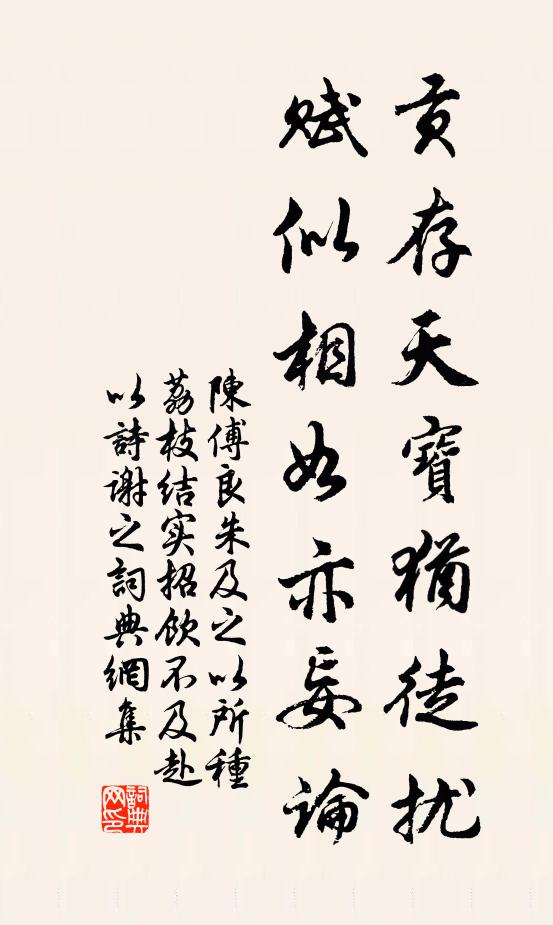 貢存天寶猶徒扰
赋似相如亦妄論
陳傅良朱及之以所種
荔枝结实招飲不及赴
以詩谢之詞典網集
詞典網印